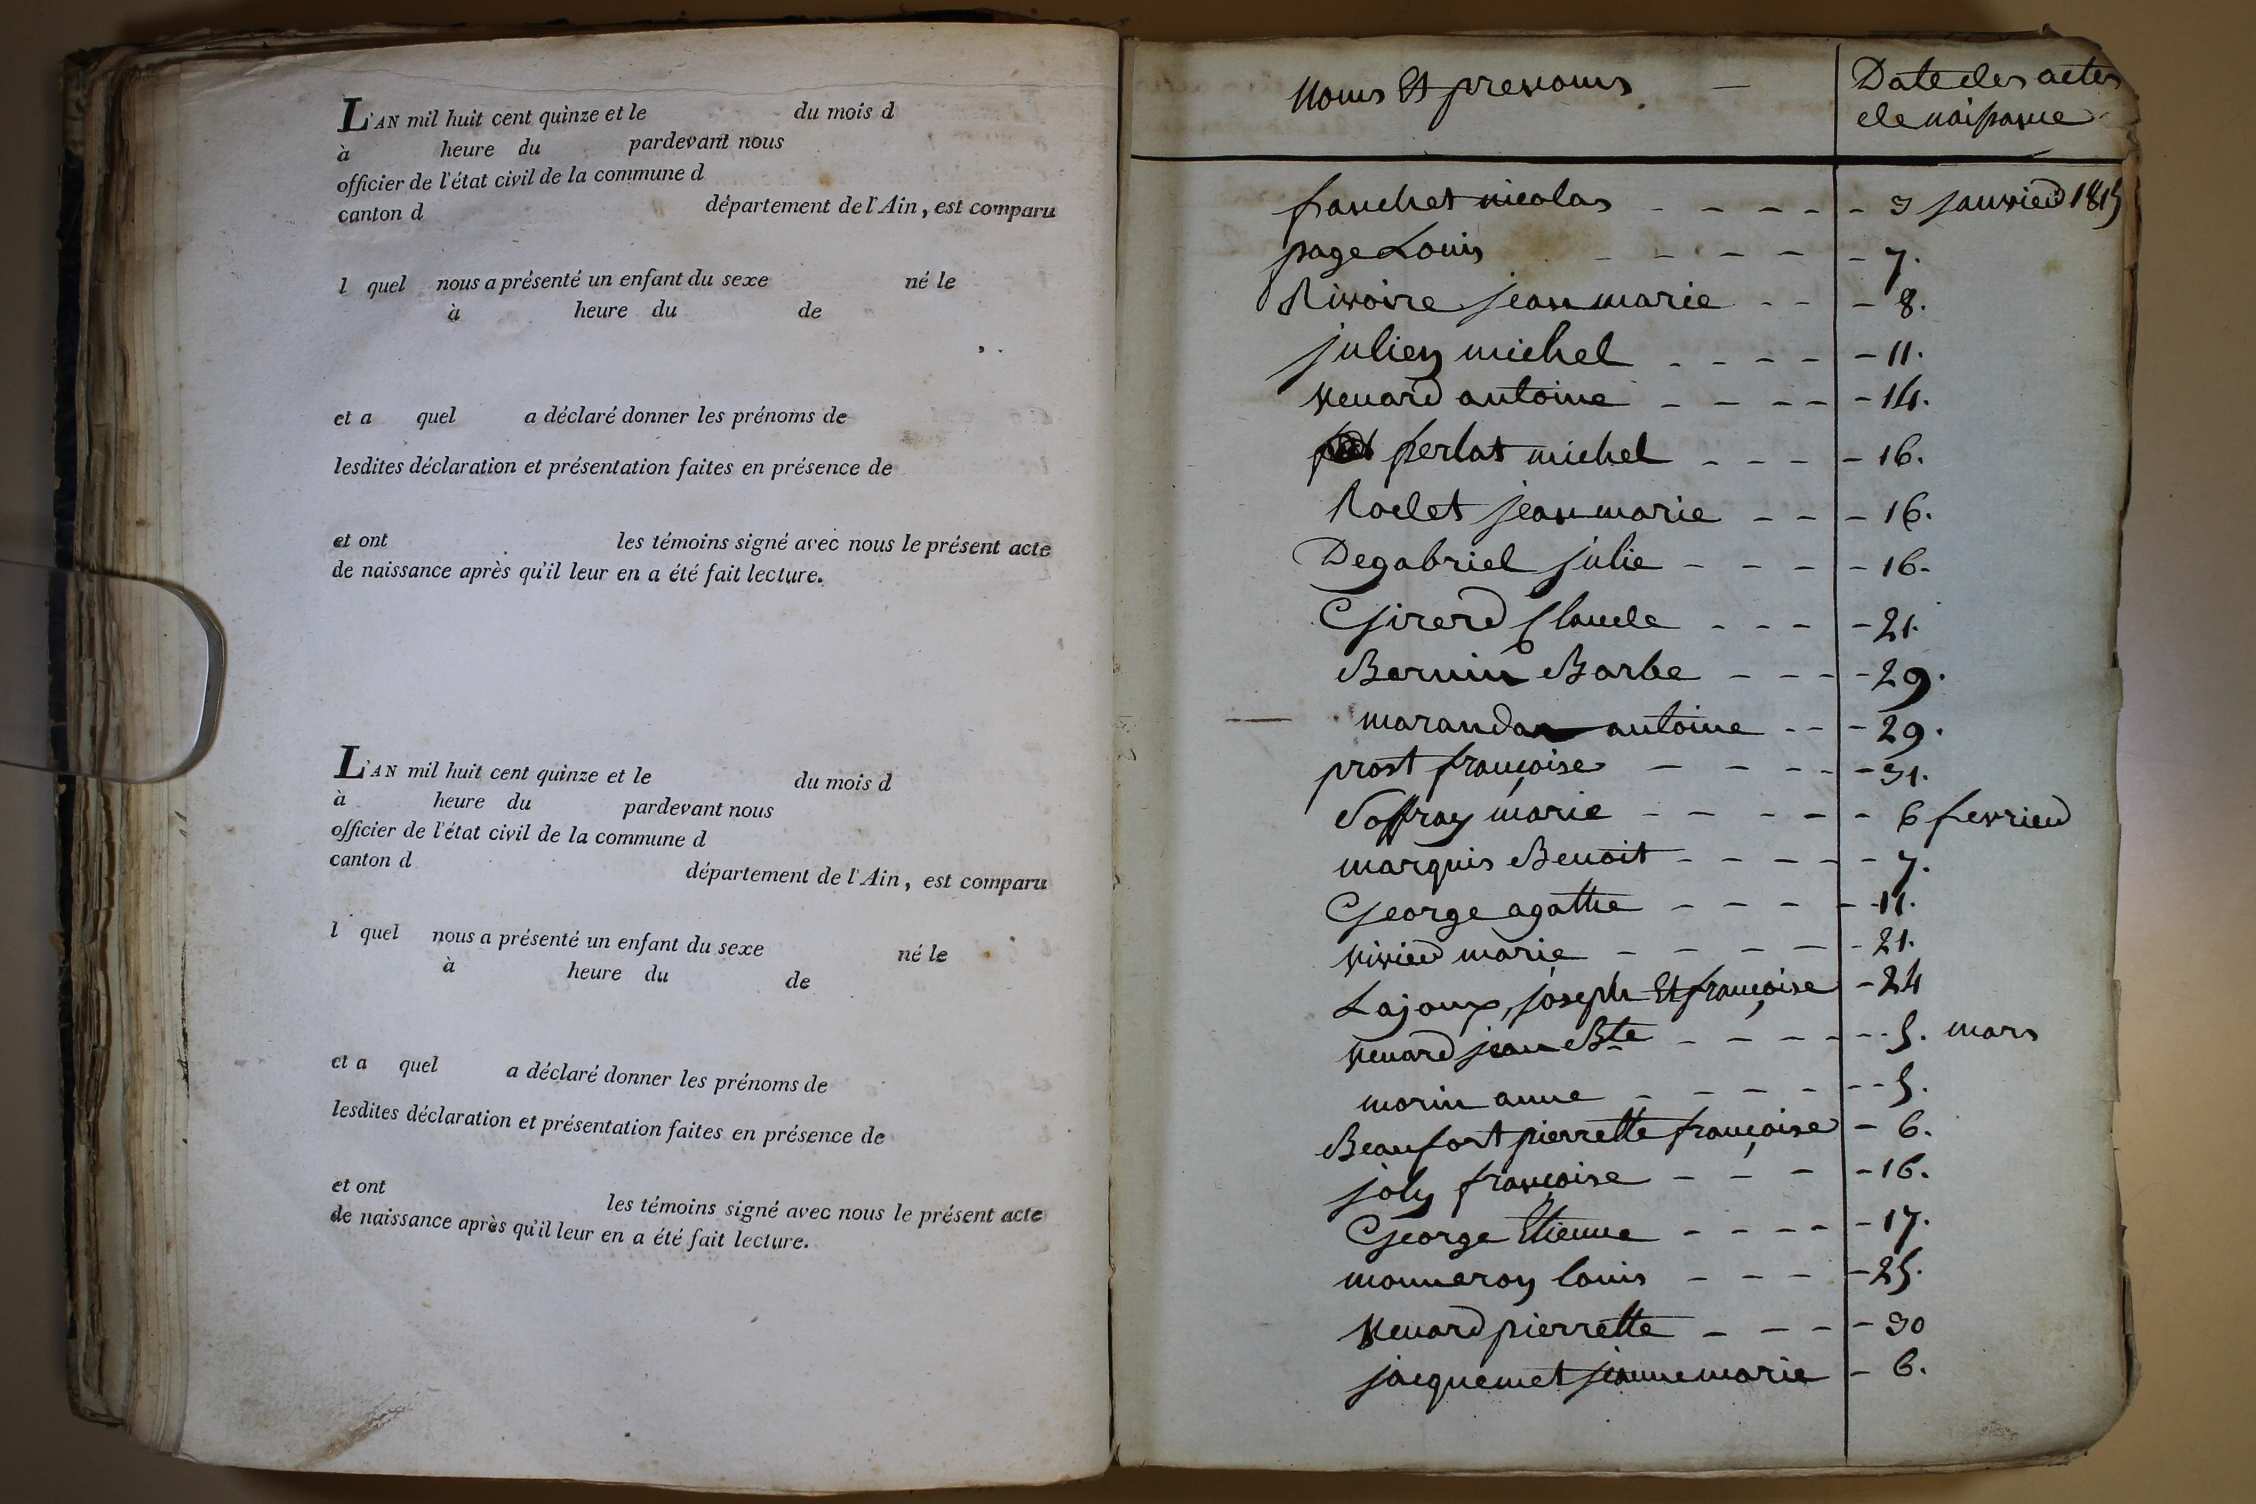 L'AN mil huit cent quinze et le du mois d
à heure du pardevant nous
officier de l'état civil de la commune d
canton d département de l'Ain, est comparu
l quel nous a présenté un enfant du sexe né le
à heure du de
et a quel a déclaré donner les prénoms de
lesdites déclaration et présentation faites en présence de
et ont les témoins signé avec nous le présent acte
de naissance après qu'il leur en a été fait lecture.
L'AN mil huit cent quinze et le du mois d
à heure du pardevant nous
officier de l'état civil de la commune d
canton d département de l'Ain, est comparu
l quel nous a présenté un enfant du sexe né le
à heure du de
et a quel a déclaré donner les prénoms de
lesdites déclaration et présentation faites en présence de
et ont les témoins signé avec nous le présent acte
de naissance après qu'il leur en a été fait lecture.
Noms Et prenoms — Date des actes
de naissance
fauchet nicolas - - - - - 3 janvier 1815
page Louis - - - - - 7.
Rivoire jean marie - - - 8.
julien michel - - - - - 11.
Venard antoine - - - - - 14.
perlat michel - - - - 16.
Roclet jean marie - - - 16.
Degabriel julie - - - - - 16.
Girerd Claude - - - - 21.
Bernin Barbe - - - - 29.
marandan antoine - - - 29.
prost françoise - - - - - 31.
Soffray marie - - - - - - 6 fevrier
marquis Benoit - - - - - 7.
George agathe - - - - - 11.
Vivier marie - - - - - 21.
Lajoux, joseph Et françoise - 24
Venard jean Bte - - - - - 5. mars
morin anne - - - - - - 5.
Beaufort pierrette françoise - 6.
joly françoise - - - - 16.
George Etienne - - - - - 17.
monneroy louis - - - - 25.
Venard pierrette - - - - 30
jacquemet jeanne marie - 6.